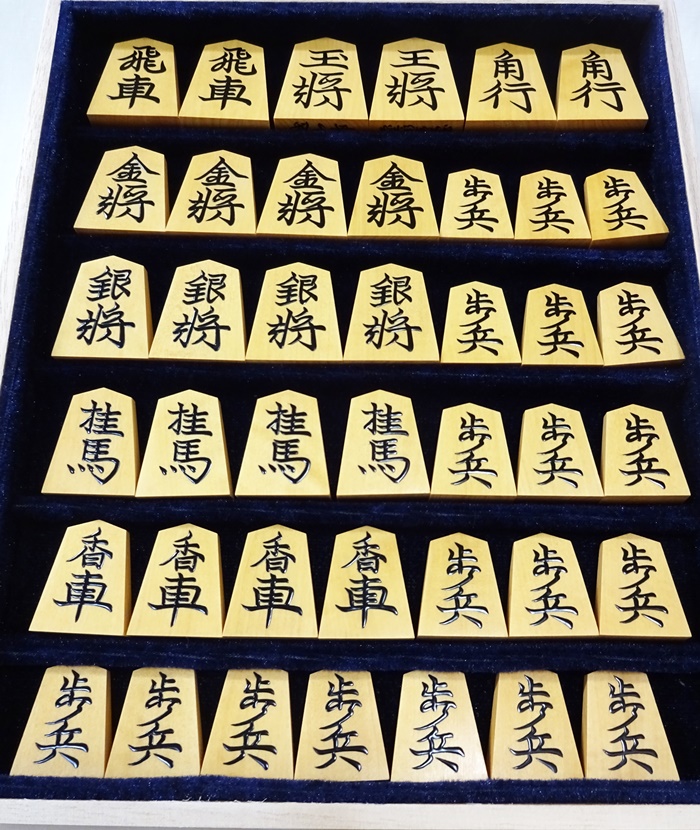 飛車 飛車 玉将 王将 角行 角行
金将 金将 金将 金将 歩兵 歩兵 歩兵
銀将 銀将 銀将 銀将 歩兵 歩兵 歩兵
桂馬 桂馬 桂馬 桂馬 歩兵 歩兵 歩兵
香車 香車 香車 香車 歩兵 歩兵 歩兵
歩兵 歩兵 歩兵 歩兵 歩兵 歩兵 歩兵